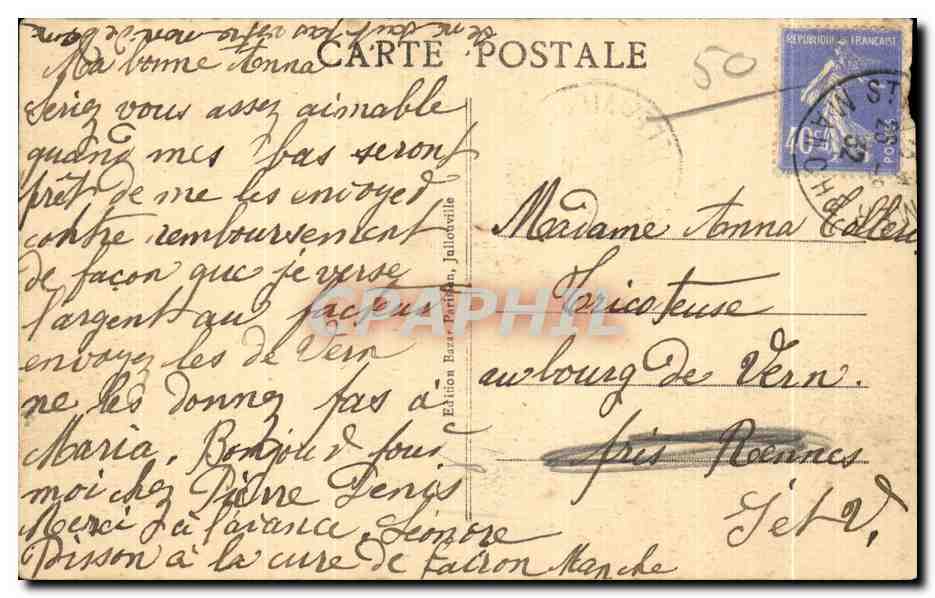 je ne sait pas votre nom de bonne
CARTE POSTALE
50
REPUBLIQUE FRANÇAISE
40c
POSTES
Ma bonne Anna
seriez vous assez aimable
quand mes bas seront
prêt de me les envoyed
contre remboursement
de façon que je verse
l'argent au facteur
envoyez les de Vern
ne les donnez pas à
Maria. Bonjour pour
moi chez Pierre Denis
Merci d'à l'avance, Léonore
Pisson à la cure de Carron Manche
Edition Bazar Parisien, Jullouville
Madame Anna
Tricoteuse
au bourg de Vern.
près Rennes
I et V.
CPAPHIL